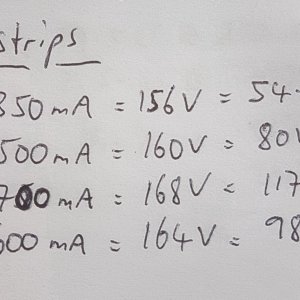 strips
350mA = 156V = 54.
500mA = 160V = 80
700mA = 168V = 117
600mA = 164V = 98